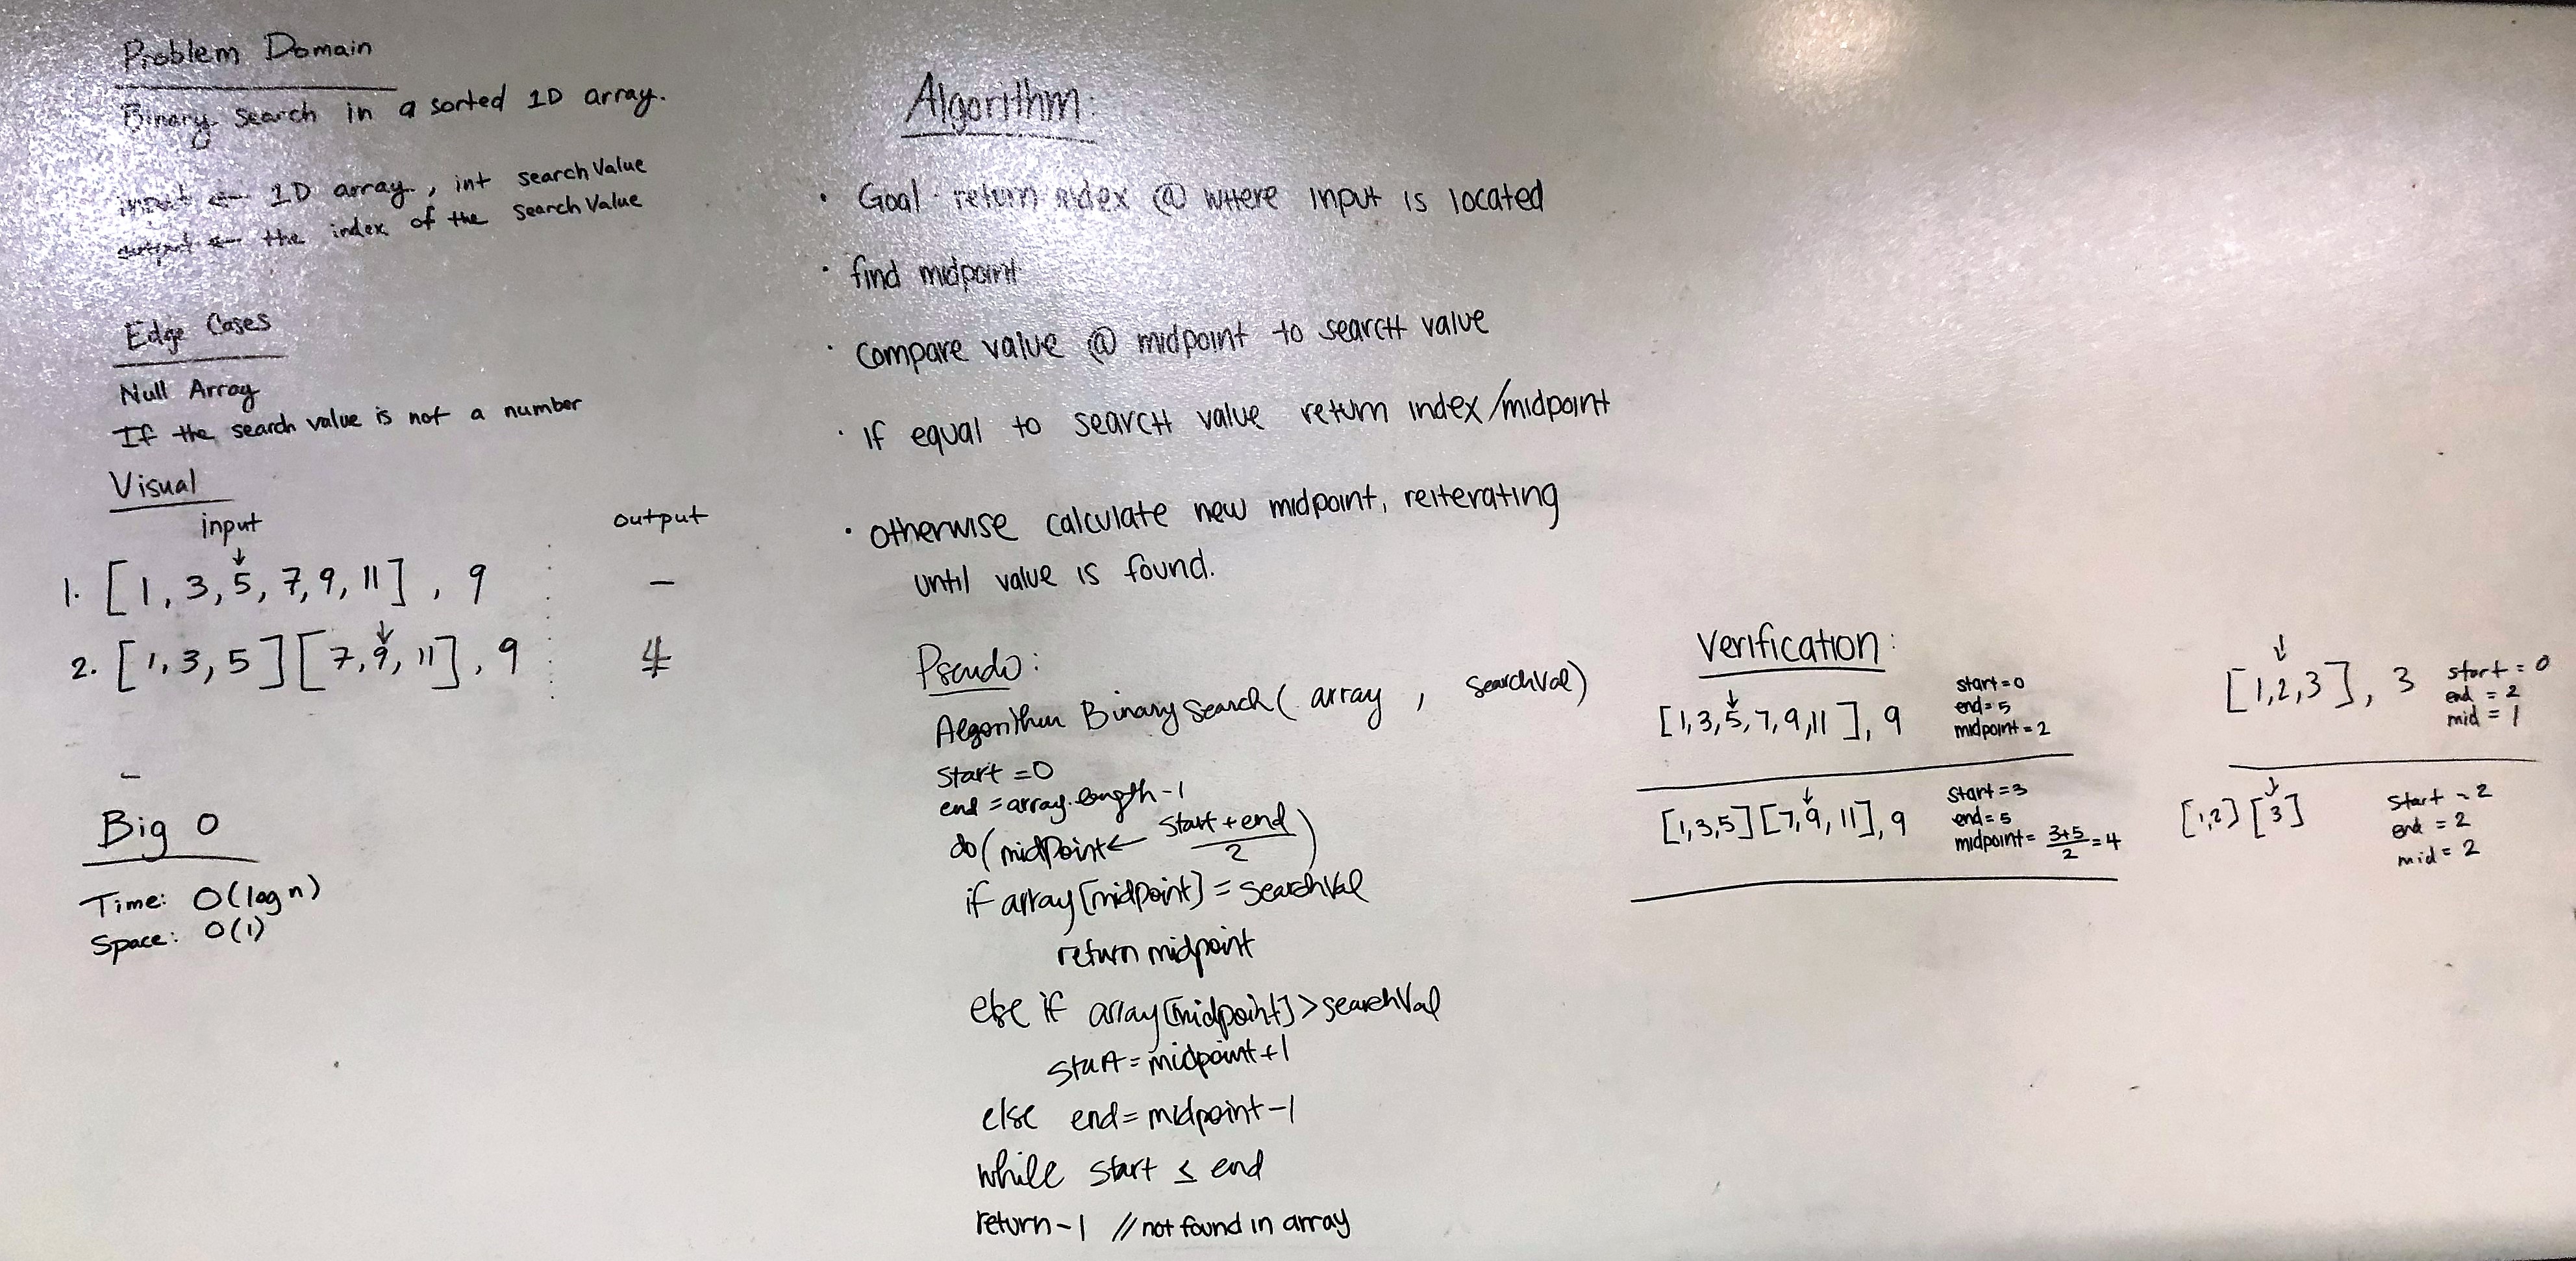 Problem Domain
Binary Search in a sorted 1D array.
input ← 1D array, int searchValue
output ← the index of the searchValue
Edge Cases
Null Array
If the search value is not a number
Visual
input output
1. [1, 3, 5, 7, 9, 11], 9 –
2. [1, 3, 5] [7, 9, 11], 9 4
–
Big O
Time: O(log n)
Space: O(1)
Algorithm:
· Goal · return index @ where input is located
· find midpoint
· compare value @ midpoint to search value
· if equal to search value return index/midpoint
· otherwise calculate new midpoint, reiterating
until value is found.
Pseudo:
Algorithm BinarySearch( array , searchVal)
start = 0
end = array.length-1
do(midpoint ← start + end / 2)
if array[midpoint] = searchVal
return midpoint
else if array[midpoint] > searchVal
start = midpoint+1
else end = midpoint-1
while start ≤ end
return -1 // not found in array
Verification:
[1,3,5,7,9,11], 9
start=0
end=5
midpoint=2
[1,3,5][7,9,11], 9
start=3
end=5
midpoint= 3+5/2 =4
[1,2,3], 3
start = 0
end = 2
mid = 1
[1,2] [3]
start = 2
end = 2
mid = 2